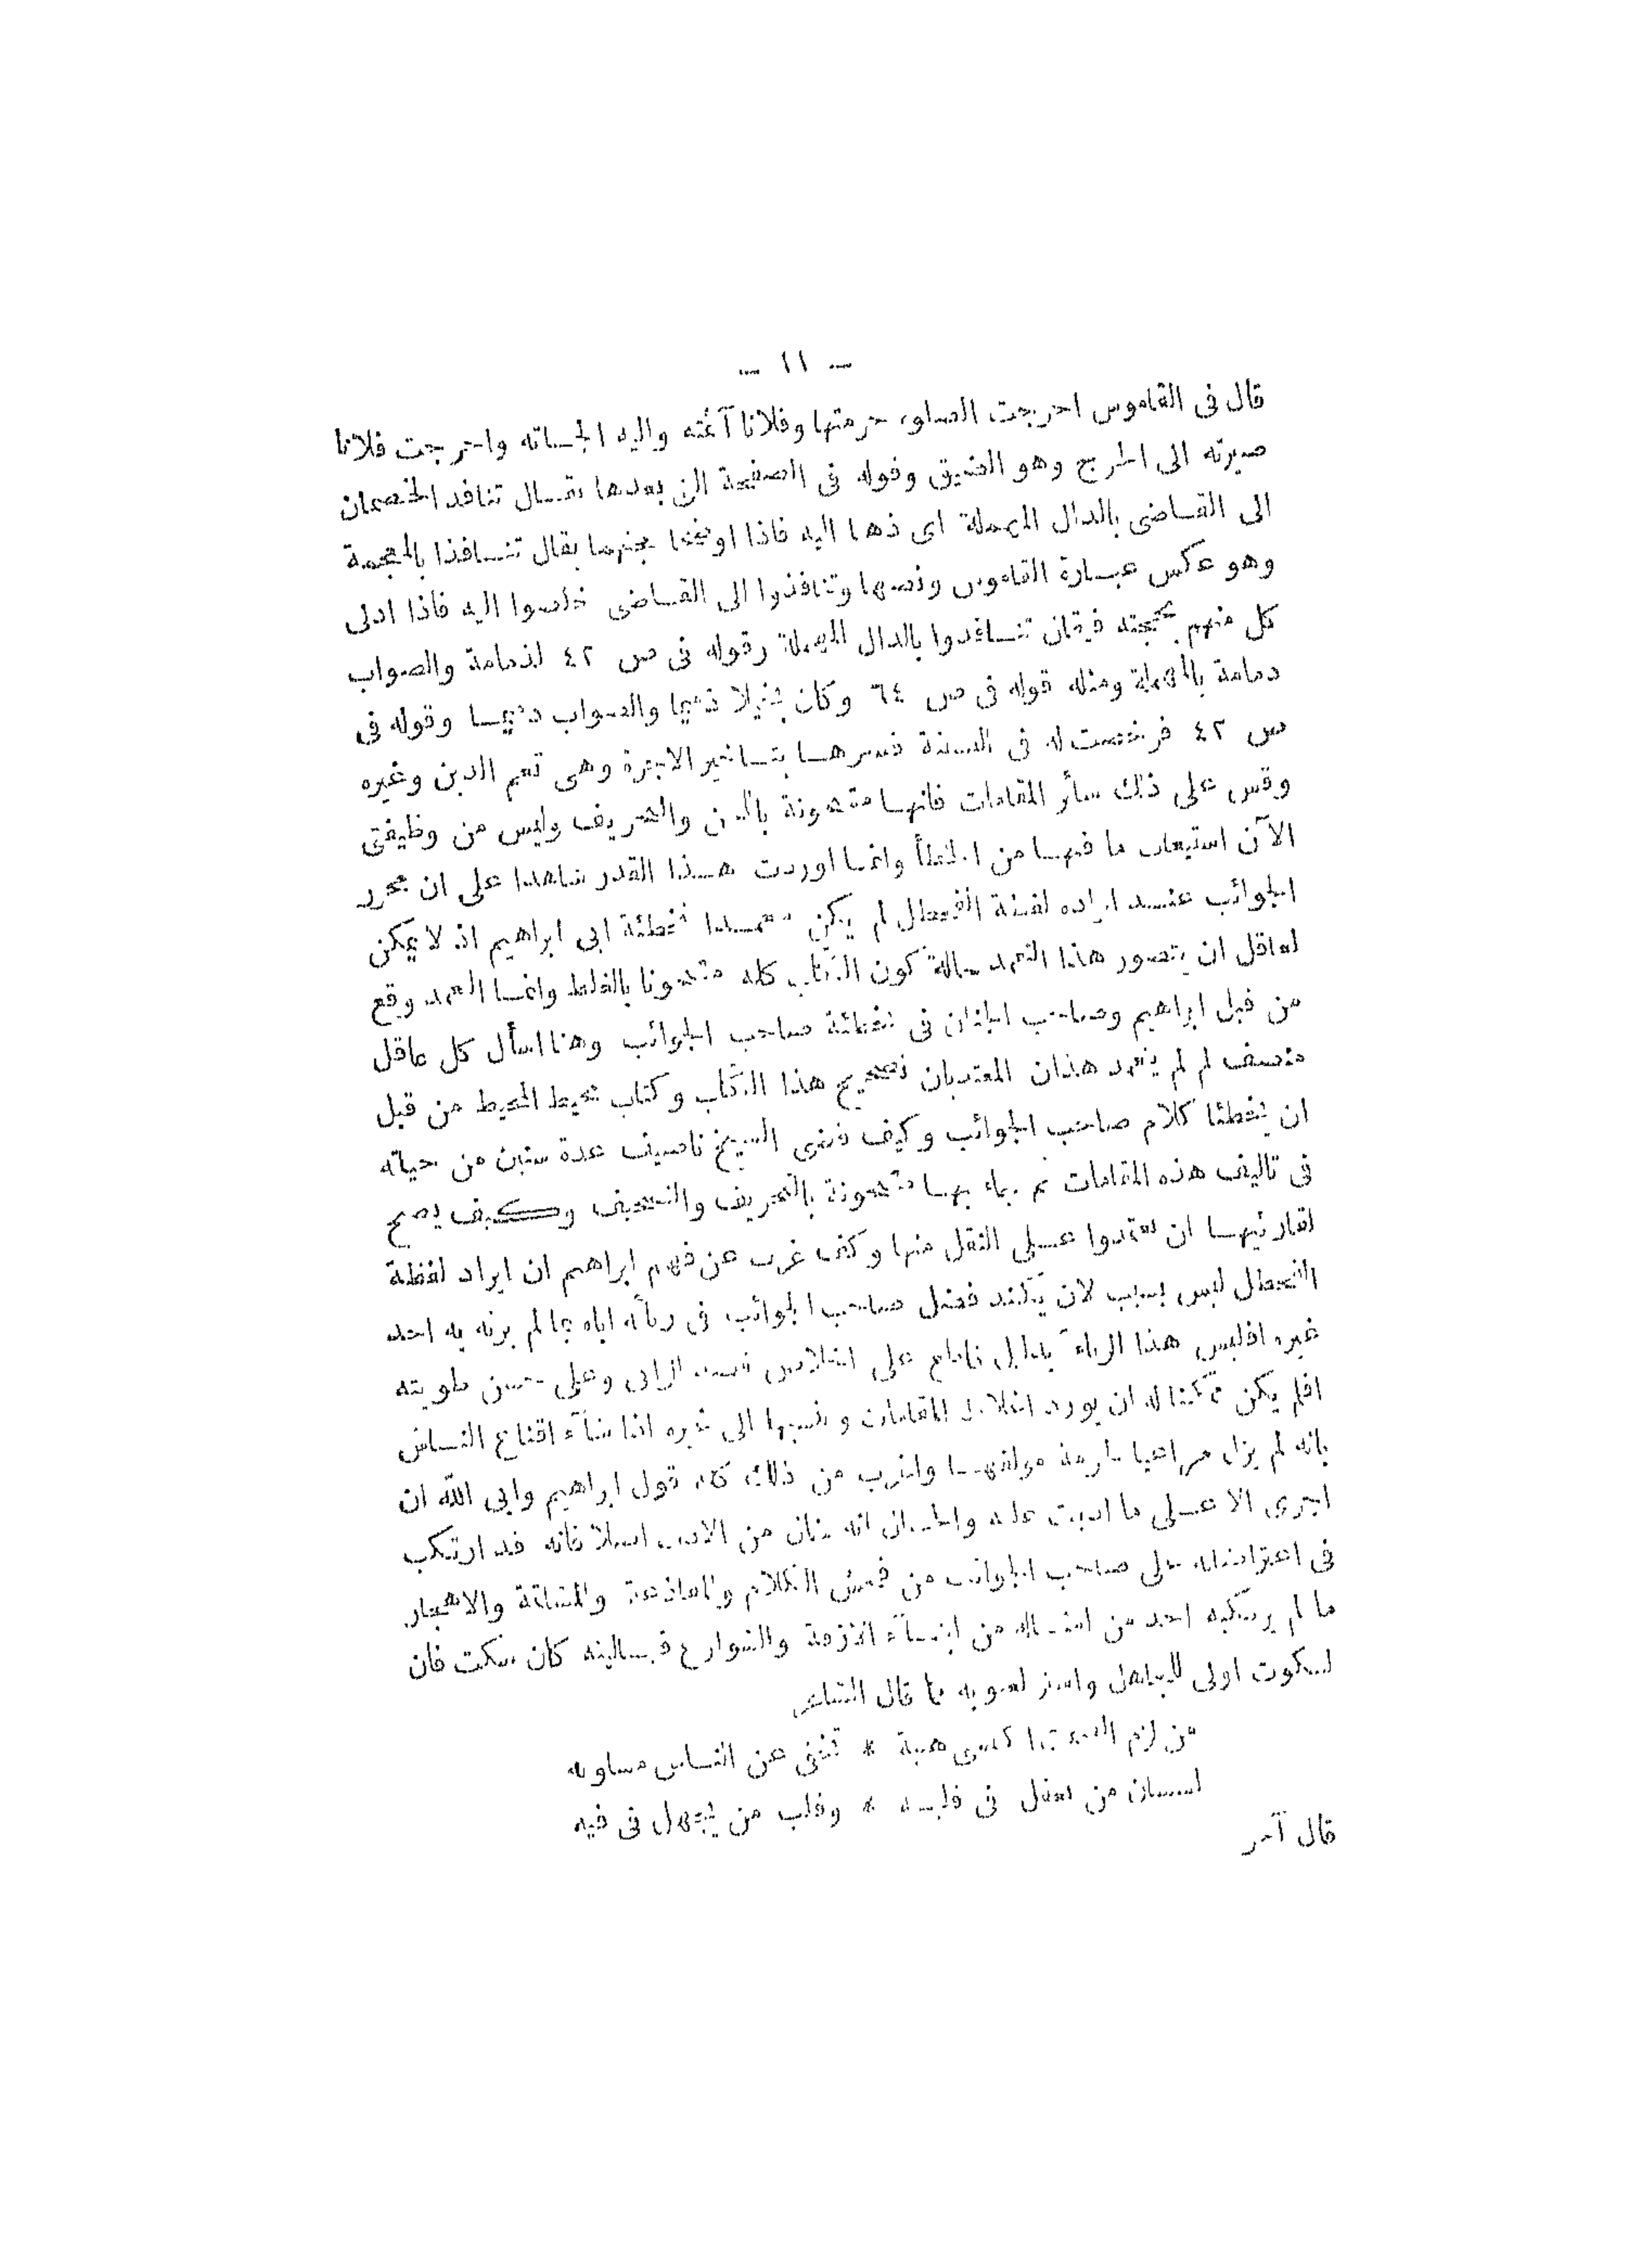 — ١١ —
قال فى القاموس احرجت الصلوة حرمتها وفلانا آثمته واليه الجأته واحرجت فلانا
صيرته الى الحرج وهو الضيق وقوله فى الصفحة التى بعدها يقال تنافد الخصمان
الى القاضى بالدال المهملة اى ذهبا اليه فاذا اوضحا حجتهما يقال تنافذا بالمعجمة
وهو عكس عبارة القاموس ونصها وتنافذوا الى القاضى خلصوا اليه فاذا ادلى
كل منهم بحجته فيقال تنافدوا بالدال المهملة وقوله فى ص ٤٢ لذمامة والصواب
دمامة بالمهملة ومثله قوله فى ص ٦٤ وكان بخيلا ذميما والصواب دميما وقوله فى
ص ٤٢ فرخصت له فى فسرها بتاخير الاجرة وهى تعم الدين وغيره
وقس على ذلك سائر المقامات فانها مشحونة والتحريف وليس من وظيفتى
الآن استيعاب ما فيها من الخطأ وانما اوردت هذا القدر شاهدا على ان محرر
الجوائب عند ايراده لفظة الفطحل لم يكن متعمدا تخطئة ابى ابراهيم اذ لا يمكن
لعاقل ان يتصور هذا التعمد حالة كون الكتاب كله مشحونا بالغلط وانما العمد وقع
من قبل ابراهيم وصاحب الجنان فى تخطئة صاحب الجوائب وهنا اسأل كل عاقل
منصف لم لم يتعمد هذان المعتديان تصحيح هذا الكتاب وكتاب محيط المحيط من قبل
ان يخطئا كلام صاحب الجوائب وكيف قضى الشيخ ناصيف عدة سنين من حياته
فى تاليف هذه المقامات ثم جاء بها مشحونة بالتحريف والتصحيف وكيف يصح
لقارئيها ان يعتمدوا على النقل منها وكيف غرب عن فهم ابراهيم ان ايراد لفظة
الفطحل ليس بسبب لان يكند فضل صاحب الجوائب فى رثائه اياه بما لم يرثه به احد
غيره افليس هذا الرثاء بدليل قاطع على اخلاص قصد الراثى وعلى حسن طويته
افلم يكن ممكنا له ان يورد اغلاط المقامات وينسبها الى غيره اذا شاء اقناع الناس
بانه لم يزل مراعيا حرمة مولفها واغرب من ذلك كله قول ابراهيم وابى الله ان
اجرى الا على ما ادبت عليه والحال انه خال من الادب اصلا فانه قد ارتكب
فى اعتراضاته على صاحب الجوائب من فحش الكلام والمشاتمة والاهجار
ما لم يرتكبه احد من امثاله من ابناء الازقة والشوارع فياليته كان سكت فان
السكوت اولى للجاهل واستر لعيوبه كما قال الشاعر
من لزم الصمت اكتسى هيبة * تخفى عن الناس مساويه
لسان من يعقل فى قلبه * وقلب من يجهل فى فيه
قال آخر